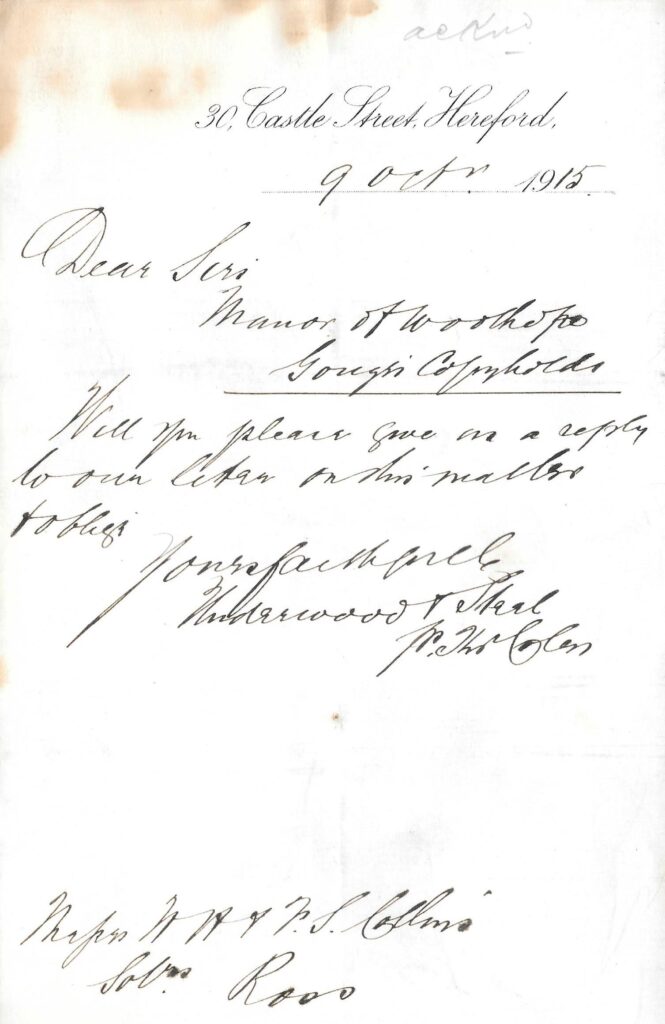 ackd
30, Castle Street, Hereford,
9 Octr 1915.
Dear Sirs
Manor of Woolhope
Gough's Copyholds
Will you please give us a reply
to our letter on this matter
& oblige
Yours faithfully
Underwood & Steel
Messrs W H & S. Collins
Solrs Ross